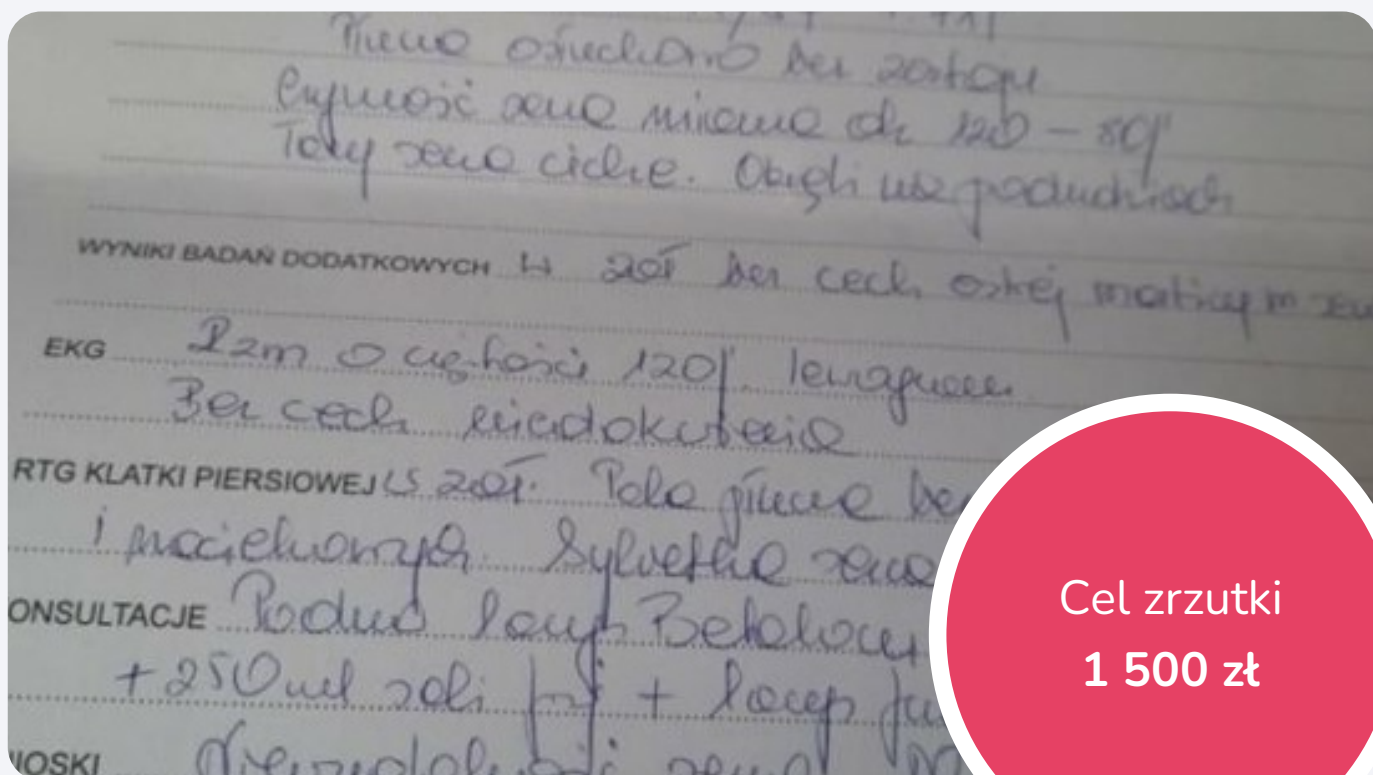 Płuca osłuchowo bez zastoju
Czynność serca miarowa ok 120 - 80/'
Tony serca ciche. Obrzęki na podudziach
WYNIKI BADAŃ DODATKOWYCH W zał bez cech ostrej martwicy m ser
EKG Rzm o częstości 120/'
Bez cech niedokrwienia
RTG KLATKI PIERSIOWEJ W zał. Pola płucne bez
i Sylwetka serca
ONSULTACJE Podano 1 amp Betaloc
+ 250 ml soli + 1 amp fu
IOSKI Niewydolność serca
Cel zrzutki
1 500 zł